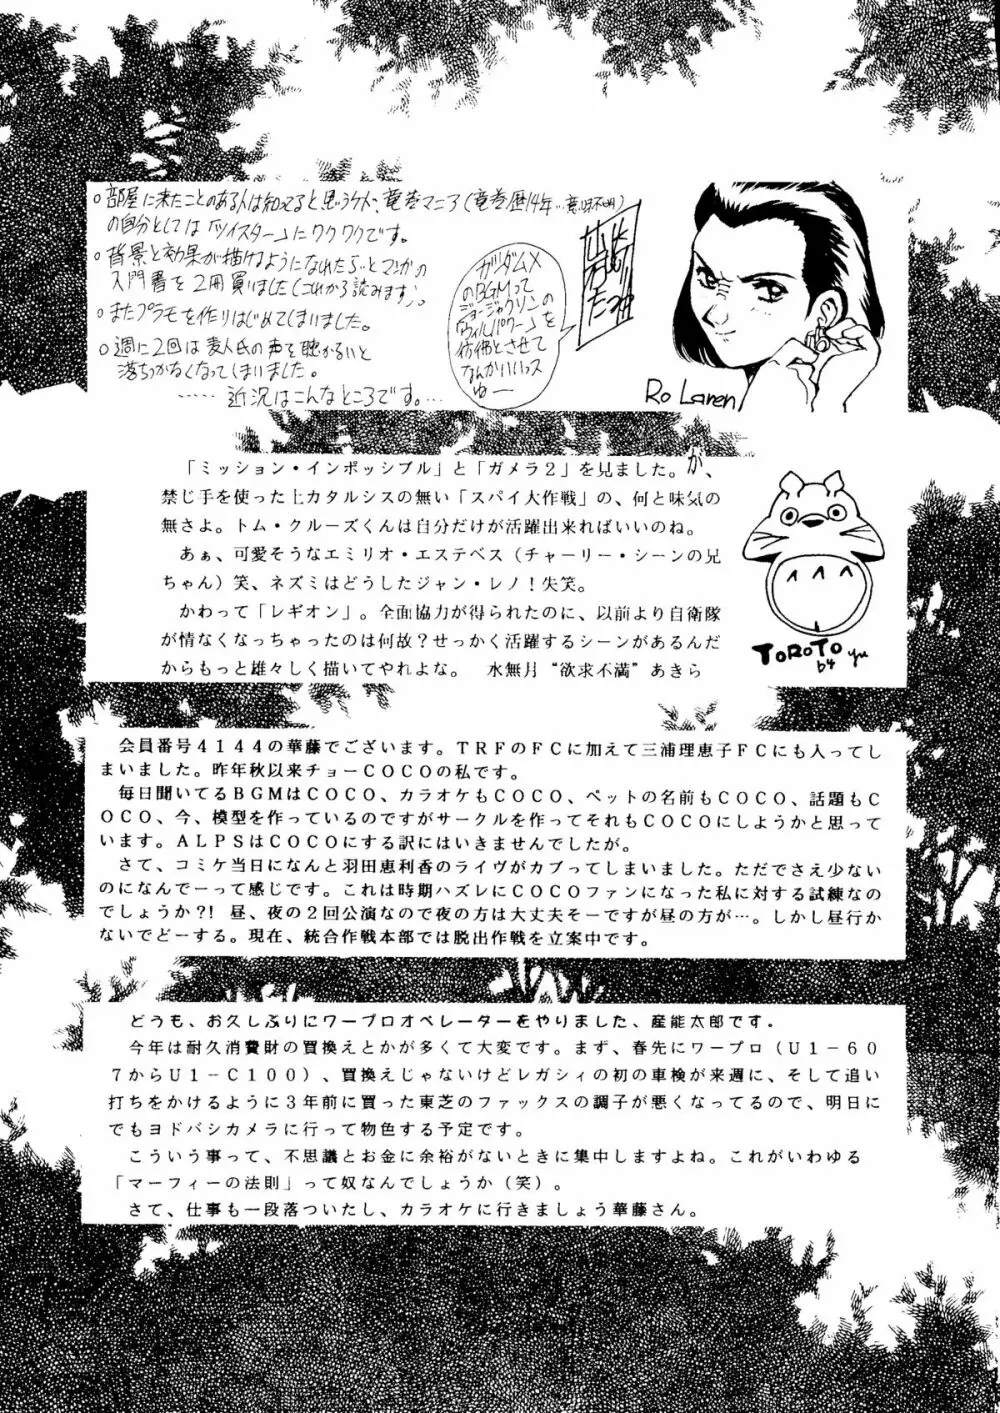 ○部屋に来たことのある人は知ってると思うケド、竜巻マニア(竜巻歴14年…意味不明)
の自分としては「ツイスター」にワクワクです。
○背景と効果が描けるようになれたら、とマンガの
入門書を2冊買いました(これから読みます)。
○またプラモを作りはじめてしまいました。
○週に2回は麦人氏の声を聴かないと
落ちつかなくなってしまいました。
……近況はこんなところです。…
ガンダムX
のBGMって
ジョー・ジャクソンの
「ウィルパワー」を
彷彿とさせて
なんかいいっス
ゆー
Ro Laren
「ミッション・インポッシブル」と「ガメラ2」を見ました。が、
禁じ手を使った上カタルシスの無い「スパイ大作戦」の、何と味気の
無さよ。トム・クルーズくんは自分だけが活躍出来ればいいのね。
あぁ、可愛そうなエミリオ・エステベス(チャーリー・シーンの兄
ちゃん)笑、ネズミはどうしたジャン・レノ!失笑。
かわって「レギオン」。全面協力が得られたのに、以前より自衛隊
が情なくなっちゃったのは何故?せっかく活躍するシーンがあるんだ
からもっと雄々しく描いてやれよな。 水無月“欲求不満”あきら
TOROTO
by yu
会員番号4144の華藤でございます。TRFのFCに加えて三浦理恵子FCにも入ってし
まいました。昨年秋以来チョーCOCOの私です。
毎日聞いてるBGMはCOCO、カラオケもCOCO、ペットの名前もCOCO、話題もC
OCO、今、模型を作っているのですがサークルを作ってそれもCOCOにしようかと思って
います。ALPSはCOCOにする訳にはいきませんでしたが。
さて、コミケ当日になんと羽田恵利香のライヴがカブってしまいました。ただでさえ少ない
のになんでーって感じです。これは時期ハズレにCOCOファンになった私に対する試練なの
でしょうか?!昼、夜の2回公演なので夜の方は大丈夫そーですが昼の方が…。しかし昼行か
ないでどーする。現在、統合作戦本部では脱出作戦を立案中です。
どうも、お久しぶりにワープロオペレーターをやりました、産能太郎です。
今年は耐久消費財の買換えとかが多くて大変です。まず、春先にワープロ(U1-60
7からU1-C100)、買換えじゃないけどレガシィの初の車検が来週に、そして追い
打ちをかけるように3年前に買った東芝のファックスの調子が悪くなってるので、明日に
でもヨドバシカメラに行って物色する予定です。
こういう事って、不思議とお金に余裕がないときに集中しますよね。これがいわゆる
「マーフィーの法則」って奴なんでしょうか(笑)。
さて、仕事も一段落ついたし、カラオケに行きましょう華藤さん。